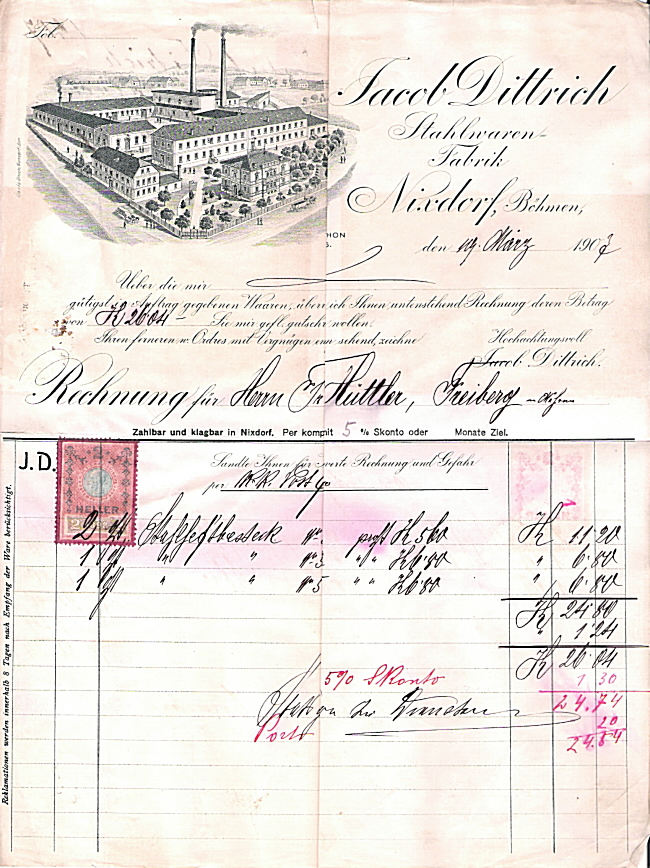 Jacob Dittrich
Stahlwaren-
Fabrik
Nixdorf, Böhmen,
den 19. März 1907
Ueber die mir
gütigst in Auftrag gegebenen Waaren, übere ich Ihnen untenstehend Rechnung deren Betrag
von K 26 04 — Sie mir gefl. gutschr. wollen.
Ihren ferneren w. Ordres mit Vergnügen entgegensehend, zeichne
Hochachtungsvoll
Jacob Dittrich.
Rechnung für Herrn Fr. Hüttler, Freiberg
Zahlbar und klagbar in Nixdorf. Per kompt 5 % Skonto oder Monate Ziel.
J. D.
HELLER
Sandte Ihnen für werte Rechnung und Gefahr
per k.k. Post
2 K 5 60 K 11 20
1 " " No 3 " " K 6 80 " 6 80
1 " " No 5 " " K 6 80 " 6 80
K 24 80
" 1 24
K 26 04
5% Skonto 1 30
24.74
Porto 20
24.54
Reklamationen werden innerhalb 8 Tagen nach Empfang der Ware berücksichtigt.